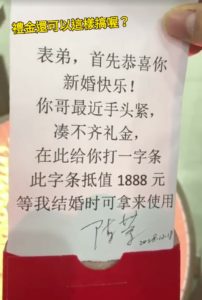 禮金還可以這樣搞喔？
表弟，首先恭喜你
新婚快乐！
你哥最近手头紧，
凑不齐礼金，
在此给你打一字条
此字条抵值 1888 元
等我结婚时可拿来使用